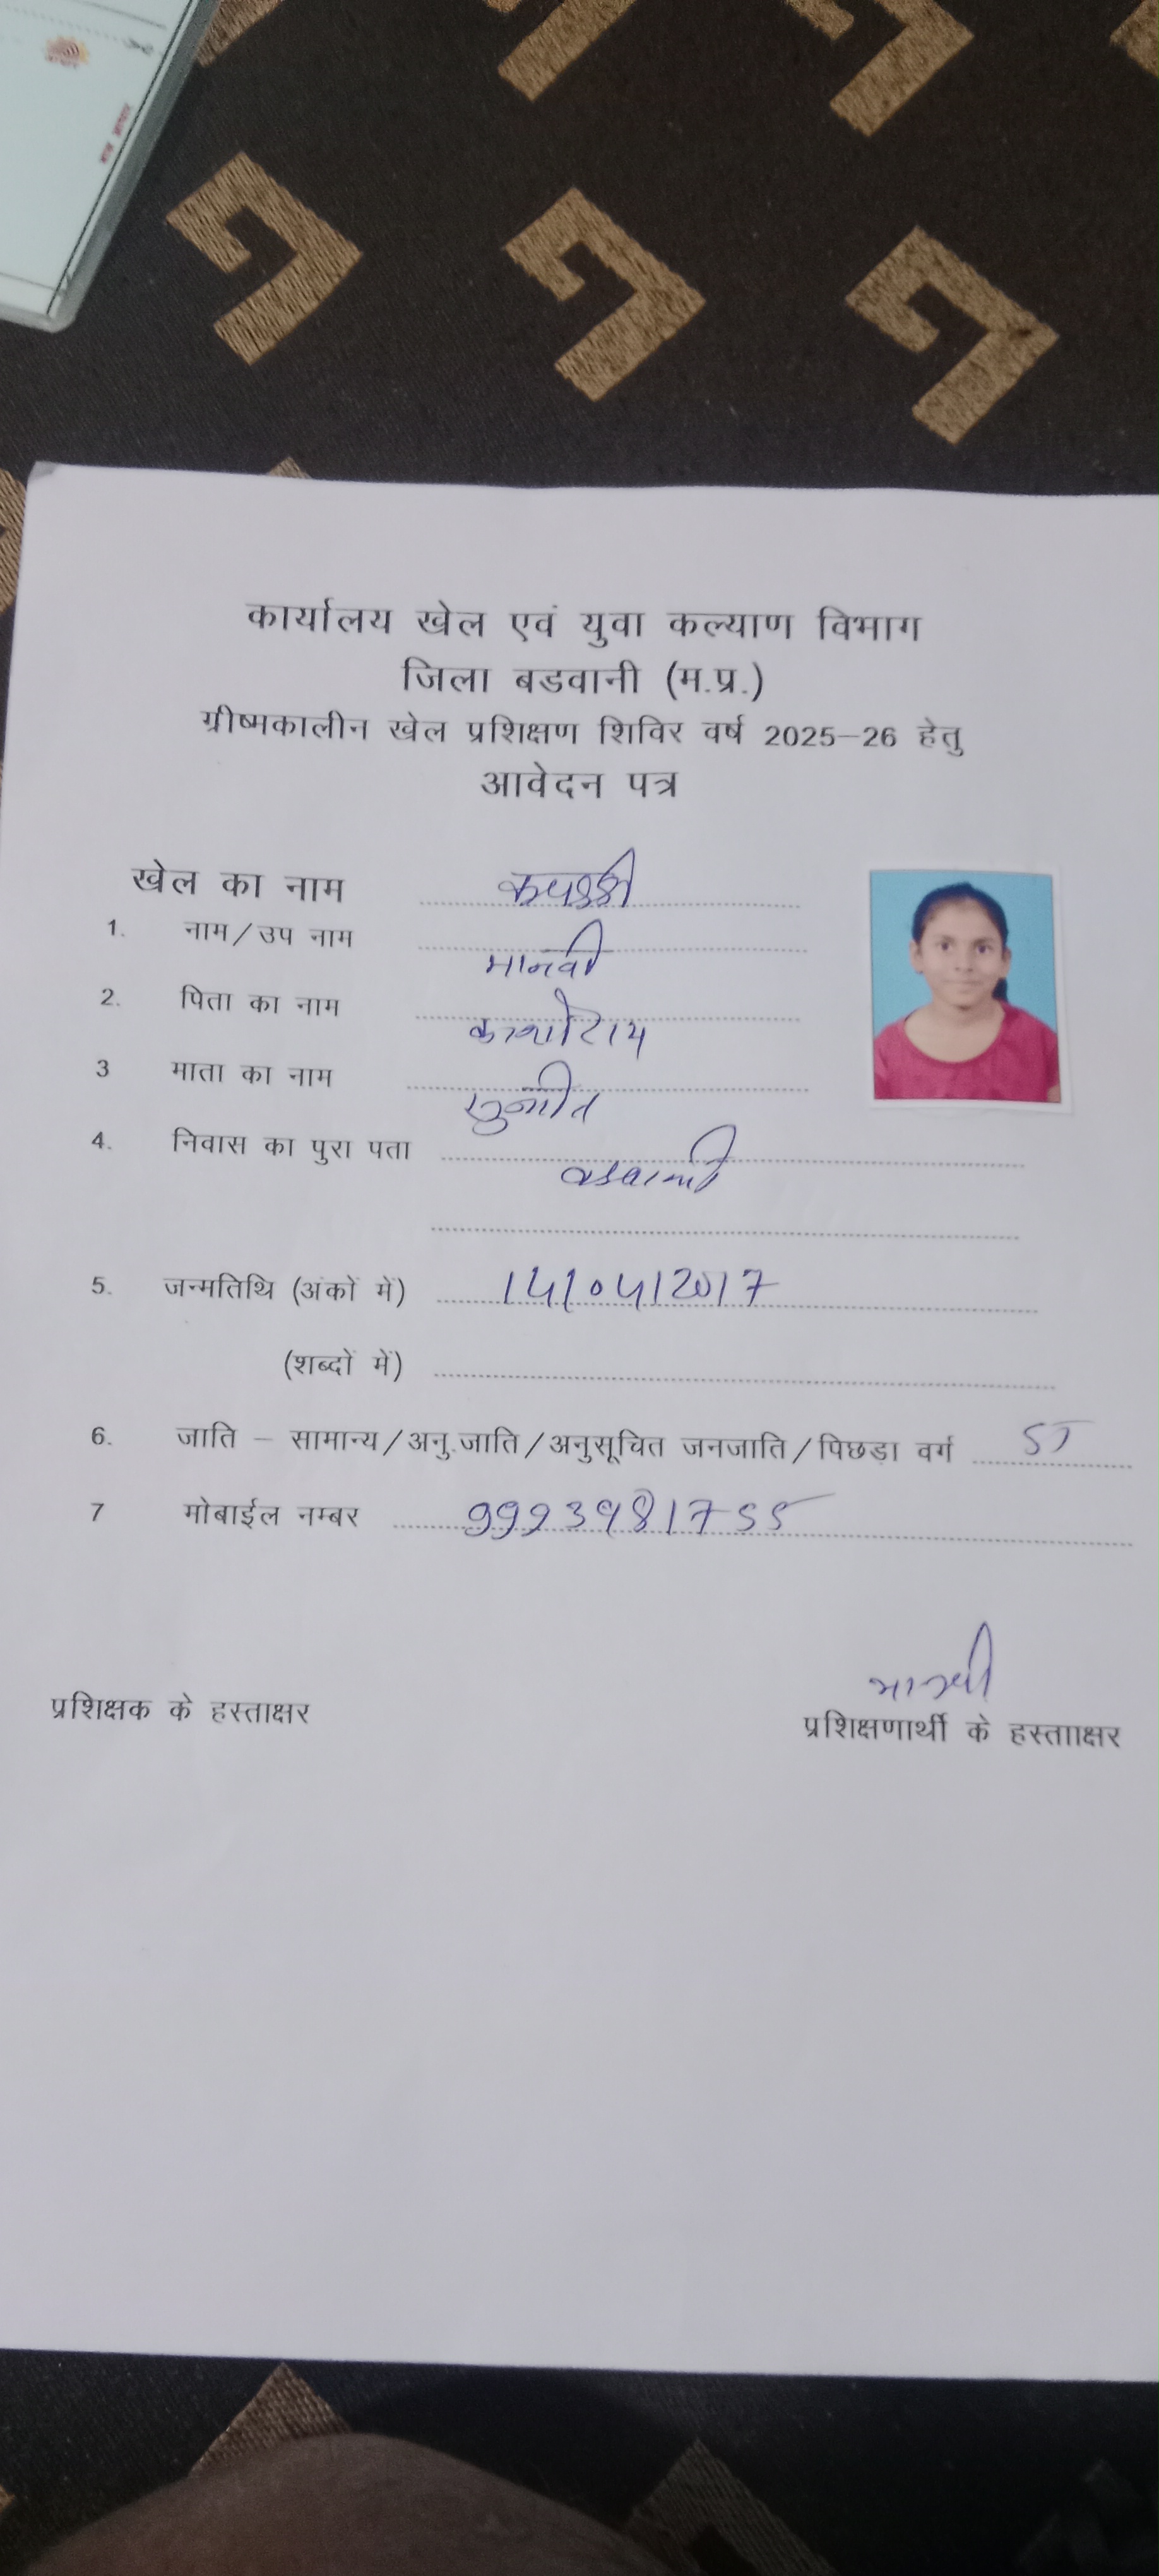 कार्यालय खेल एवं युवा कल्याण विभाग
जिला बडवानी (म.प्र.)
ग्रीष्मकालीन खेल प्रशिक्षण शिविर वर्ष 2025–26 हेतु
आवेदन पत्र
खेल का नाम
1. नाम/उप नाम मानवी
2. पिता का नाम
3 माता का नाम
4. निवास का पुरा पता बडवानी
5. जन्मतिथि (अंकों में) 14/04/2017
(शब्दों में)
6. जाति – सामान्य/अनु.जाति/अनुसूचित जनजाति/पिछड़ा वर्ग ST
7 मोबाईल नम्बर 9993981755
प्रशिक्षक के हस्ताक्षर
प्रशिक्षणार्थी के हस्तााक्षर